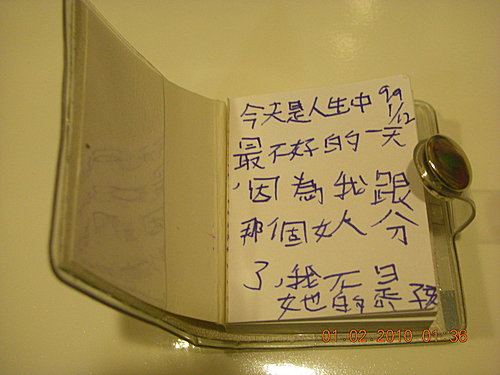 今天是人生中 99 1/12
最不好的一天
,因為我跟
那個女人分
了,我不是
她的孩
01.02.2010 01:36